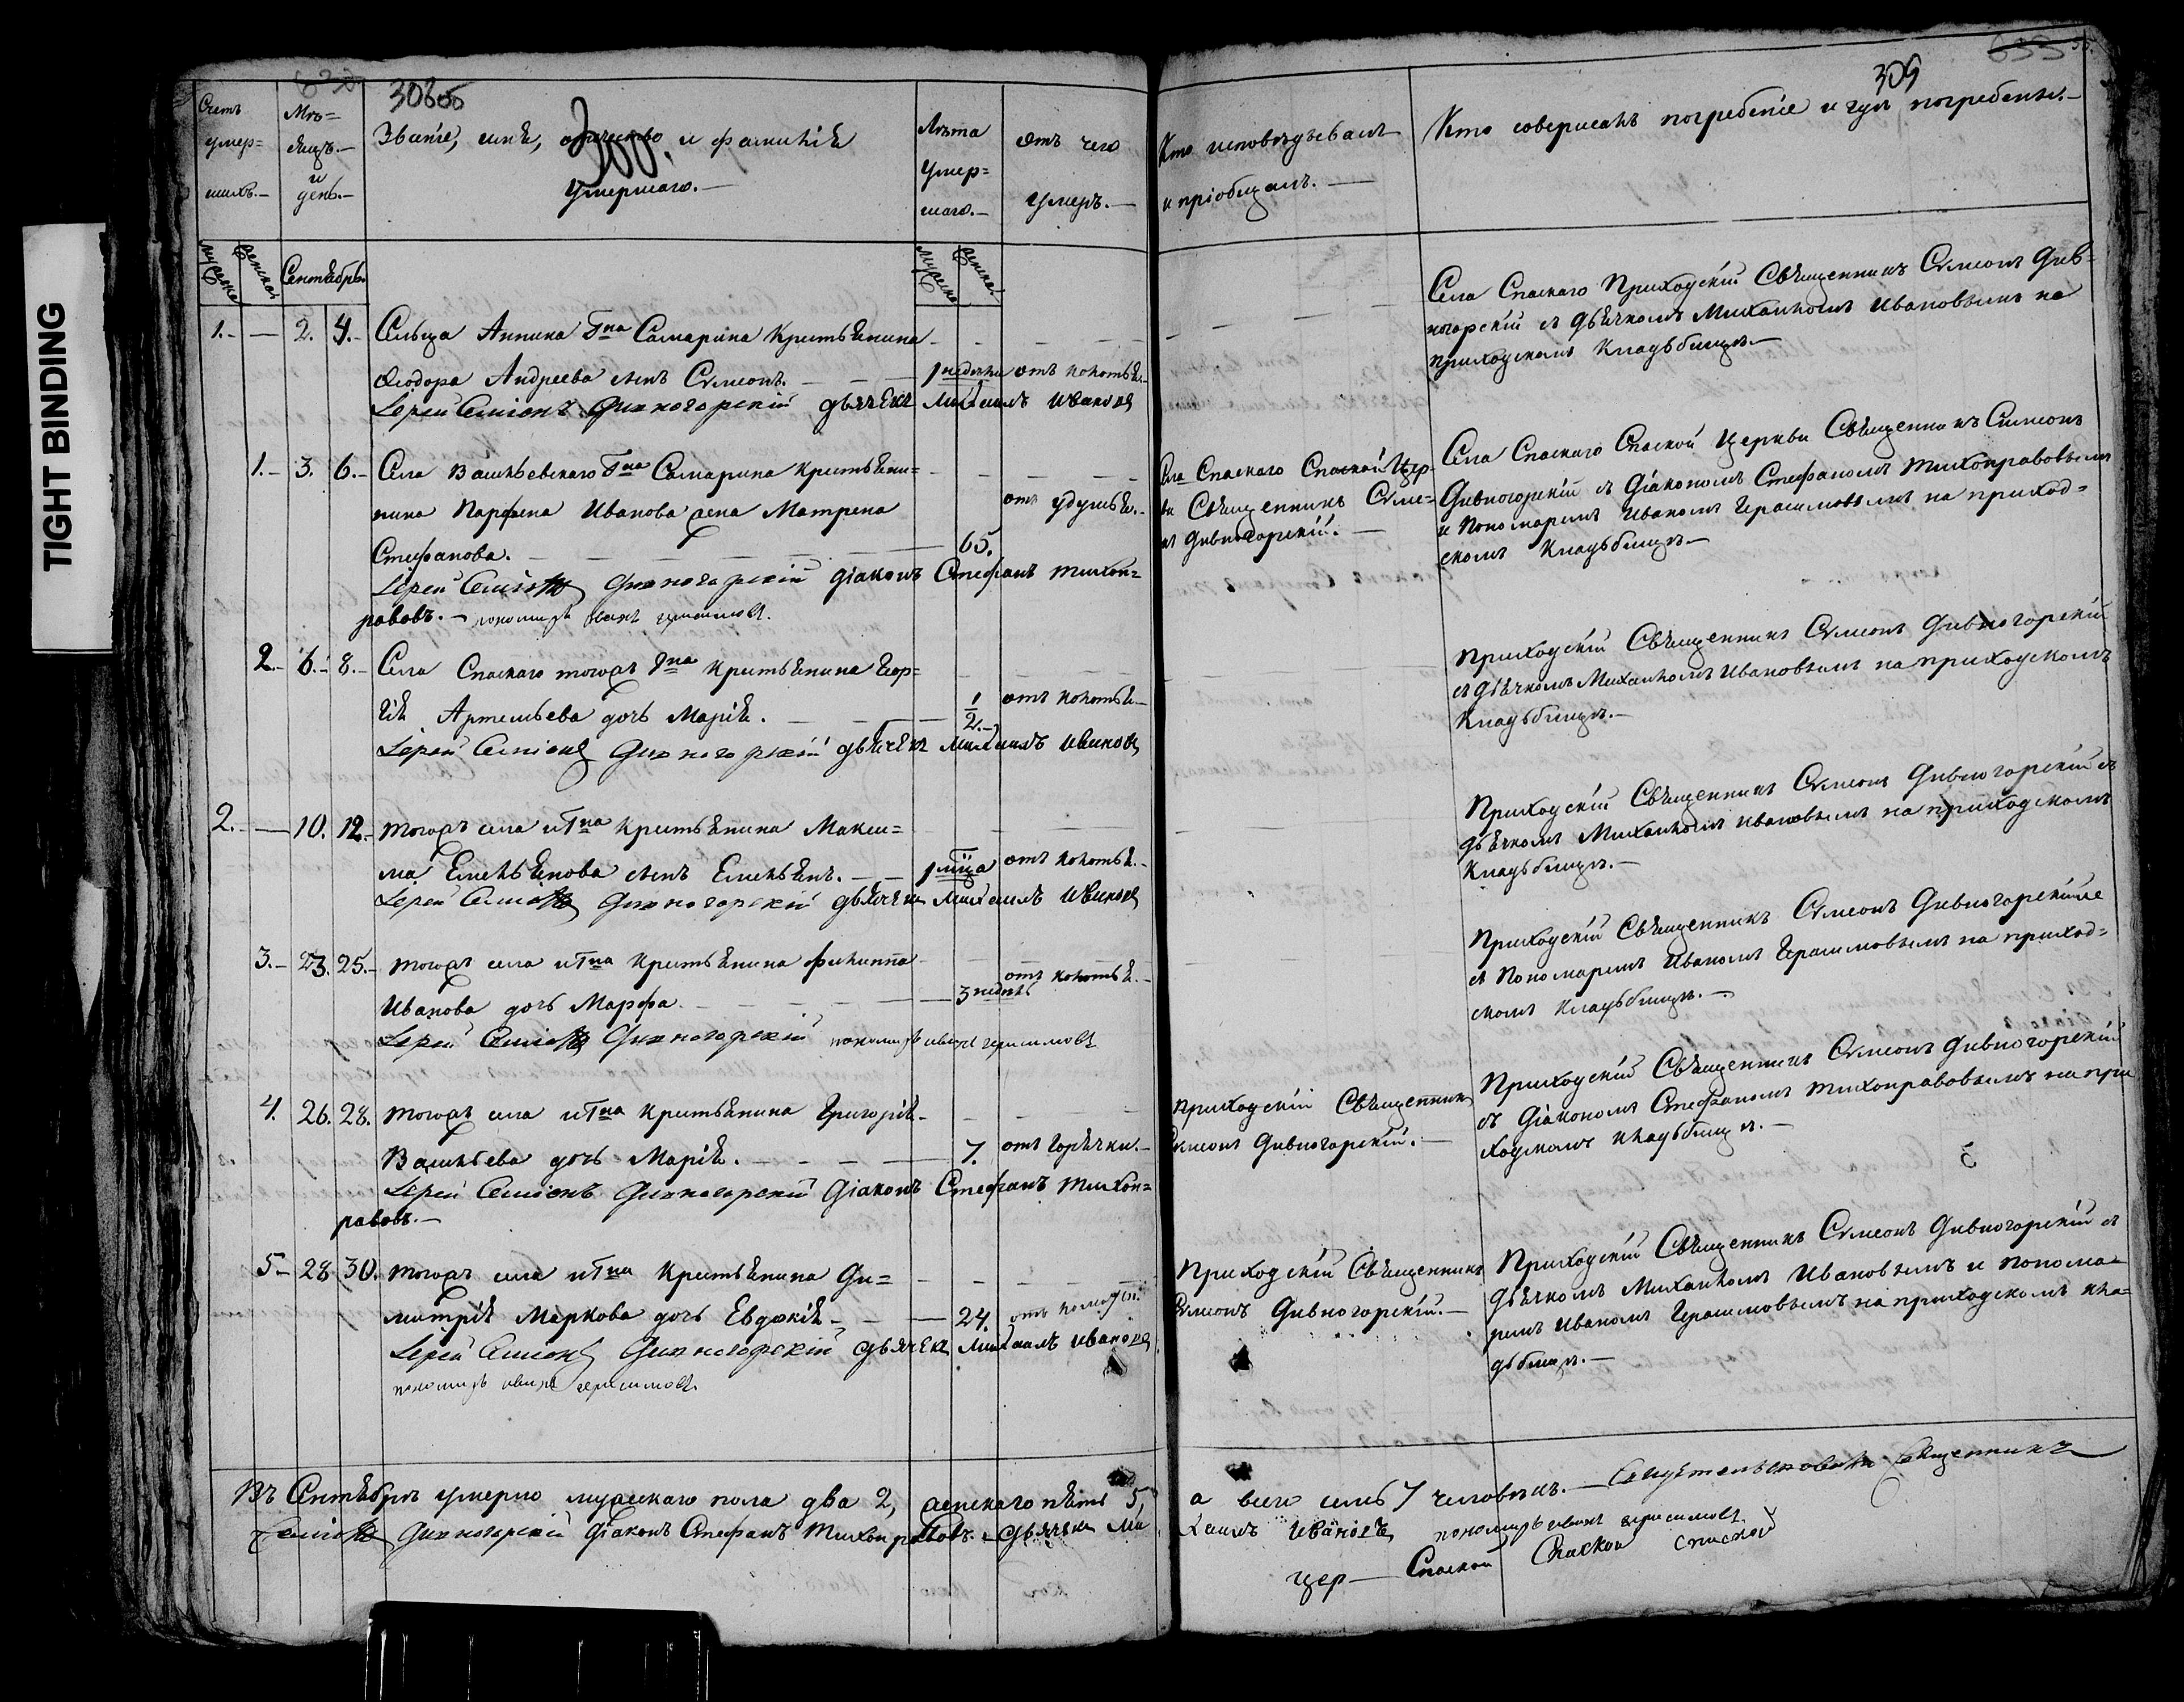 TIGHT BINDING
308
309
Счетъ умер=шихъ.—
Мѣ=сяцъ.— и день.—
Званіе, имя, отчество и фамилія умершаго.—
Лѣта умер=шаго.—
отъ чего умеръ.—
Кто исповѣдывалъ и пріобщалъ.—
Кто совершалъ погребеніе и гдѣ погребены.—
мужеска женска Сентября мужеска женска
1. — 2. 4. Сельца Аннина Гна Самарина Крестьянина
Ѳеодора Андреева сынъ Сѵмеонъ. — 1 недели отъ колотья.
Іерей Симіонъ Дивногорскій дьячекъ Михаилъ Ивановъ
Села Спаскаго Приходскій Священникъ Сѵмеонъ Див=
ногорскій съ дьячкомъ Михаиломъ Ивановымъ на
приходскомъ кладьбищѣ.—
1. 3. 6. Села Васильевскаго Гна Самарина Крестьяни=
нина Парфена Иванова жена Матрена
Стефанова. — 65. отъ удушья.
Іерей Симіонъ Дивногорскій Діаконъ Стефанъ Тихон=
равовъ.— пономарь Иванъ герасимовъ.
Села Спаскаго Спаской Цер=
кви Священникъ Сѵме=
нъ Дивногорскій.—
Села Спаскаго Спаской Церкви Священникъ Симеонъ
Дивногорскій съ Діакономъ Стефаномъ Тихонравовымъ
и Пономаремъ Иваномъ Герасимовымъ на приход=
скомъ кладьбищѣ.—
2. 6. 8. Села Спаскаго тогожъ Гна Крестьянина Геор=
гія Артемьева дочь Марія. — 1/2. отъ колотья
Іерей Симіонъ Дивногорскій дьячекъ Михаилъ Ивановъ
Приходскій Священникъ Сѵмеонъ Дивногорскій
съ дьячкомъ Михаиломъ Ивановымъ на приходскомъ
Кладьбищѣ.—
2. — 10. 12. тогожъ села и Гна Крестьянина Макси=
ма Емельянова сынъ Емельянъ. — 1 мца отъ колотья.
Іерей Симіонъ Дивногорскій дьячекъ Михаилъ Ивановъ
Приходскій Священникъ Сѵмеонъ Дивногорскій съ
дьячкомъ Михаиломъ Ивановымъ на приходскомъ
Кладьбищѣ.—
3. 23. 25. тогожъ села и Гна Крестьянина Филиппа
Иванова дочь Марфа. — 3 недель отъ колотья.
Іерей Симіонъ Дивногорскій пономарь иванъ герасимовъ
Приходскій Священникъ Сѵмеонъ Дивногорскій
съ Пономаремъ Иваномъ Герасимовымъ на приход=
скомъ кладьбищѣ.—
4. 26. 28. тогожъ села и Гна Крестьянина Григорія
Васильева дочь Марія. — 7. отъ горячки.
Іерей Симіонъ Дивногорскій Діаконъ Стефанъ Тихон=
равовъ.—
Приходскій Священникъ
Сѵмеонъ Дивногорскій.—
Приходскій Священникъ Сѵмеонъ Дивногорскій
съ Діакономъ Стефаномъ Тихонравовымъ на при
ходскомъ кладьбищѣ.—
5. 28 30. тогожъ села и Гна Крестьянина Ди=
митрія Маркова дочь Евдокія — 24.
Іерей Симіонъ Дивногорскій дьячекъ Михаилъ Ивановъ
пономарь иванъ герасимовъ.
Приходскій Священникъ
Сѵмеонъ Дивногорскій.—
Приходскій Священникъ Сѵмеонъ Дивногорскій съ
дьячкомъ Михаиломъ Ивановымъ и понома=
ремъ Иваномъ Герасимовымъ на приходскомъ кла=
дьбищѣ.—
Въ Сентябрѣ умерло мужескаго пола два 2, женскаго пять 5, а всего семь 7 человѣкъ.— Свидетельствовали Священникъ
Симіонъ Дивногорскій Діаконъ Стефанъ Тихонравовъ. дьячекъ Ми хаилъ Ивановъ пономарь иванъ герасимовъ.
цер— Спаской Спаской спаской